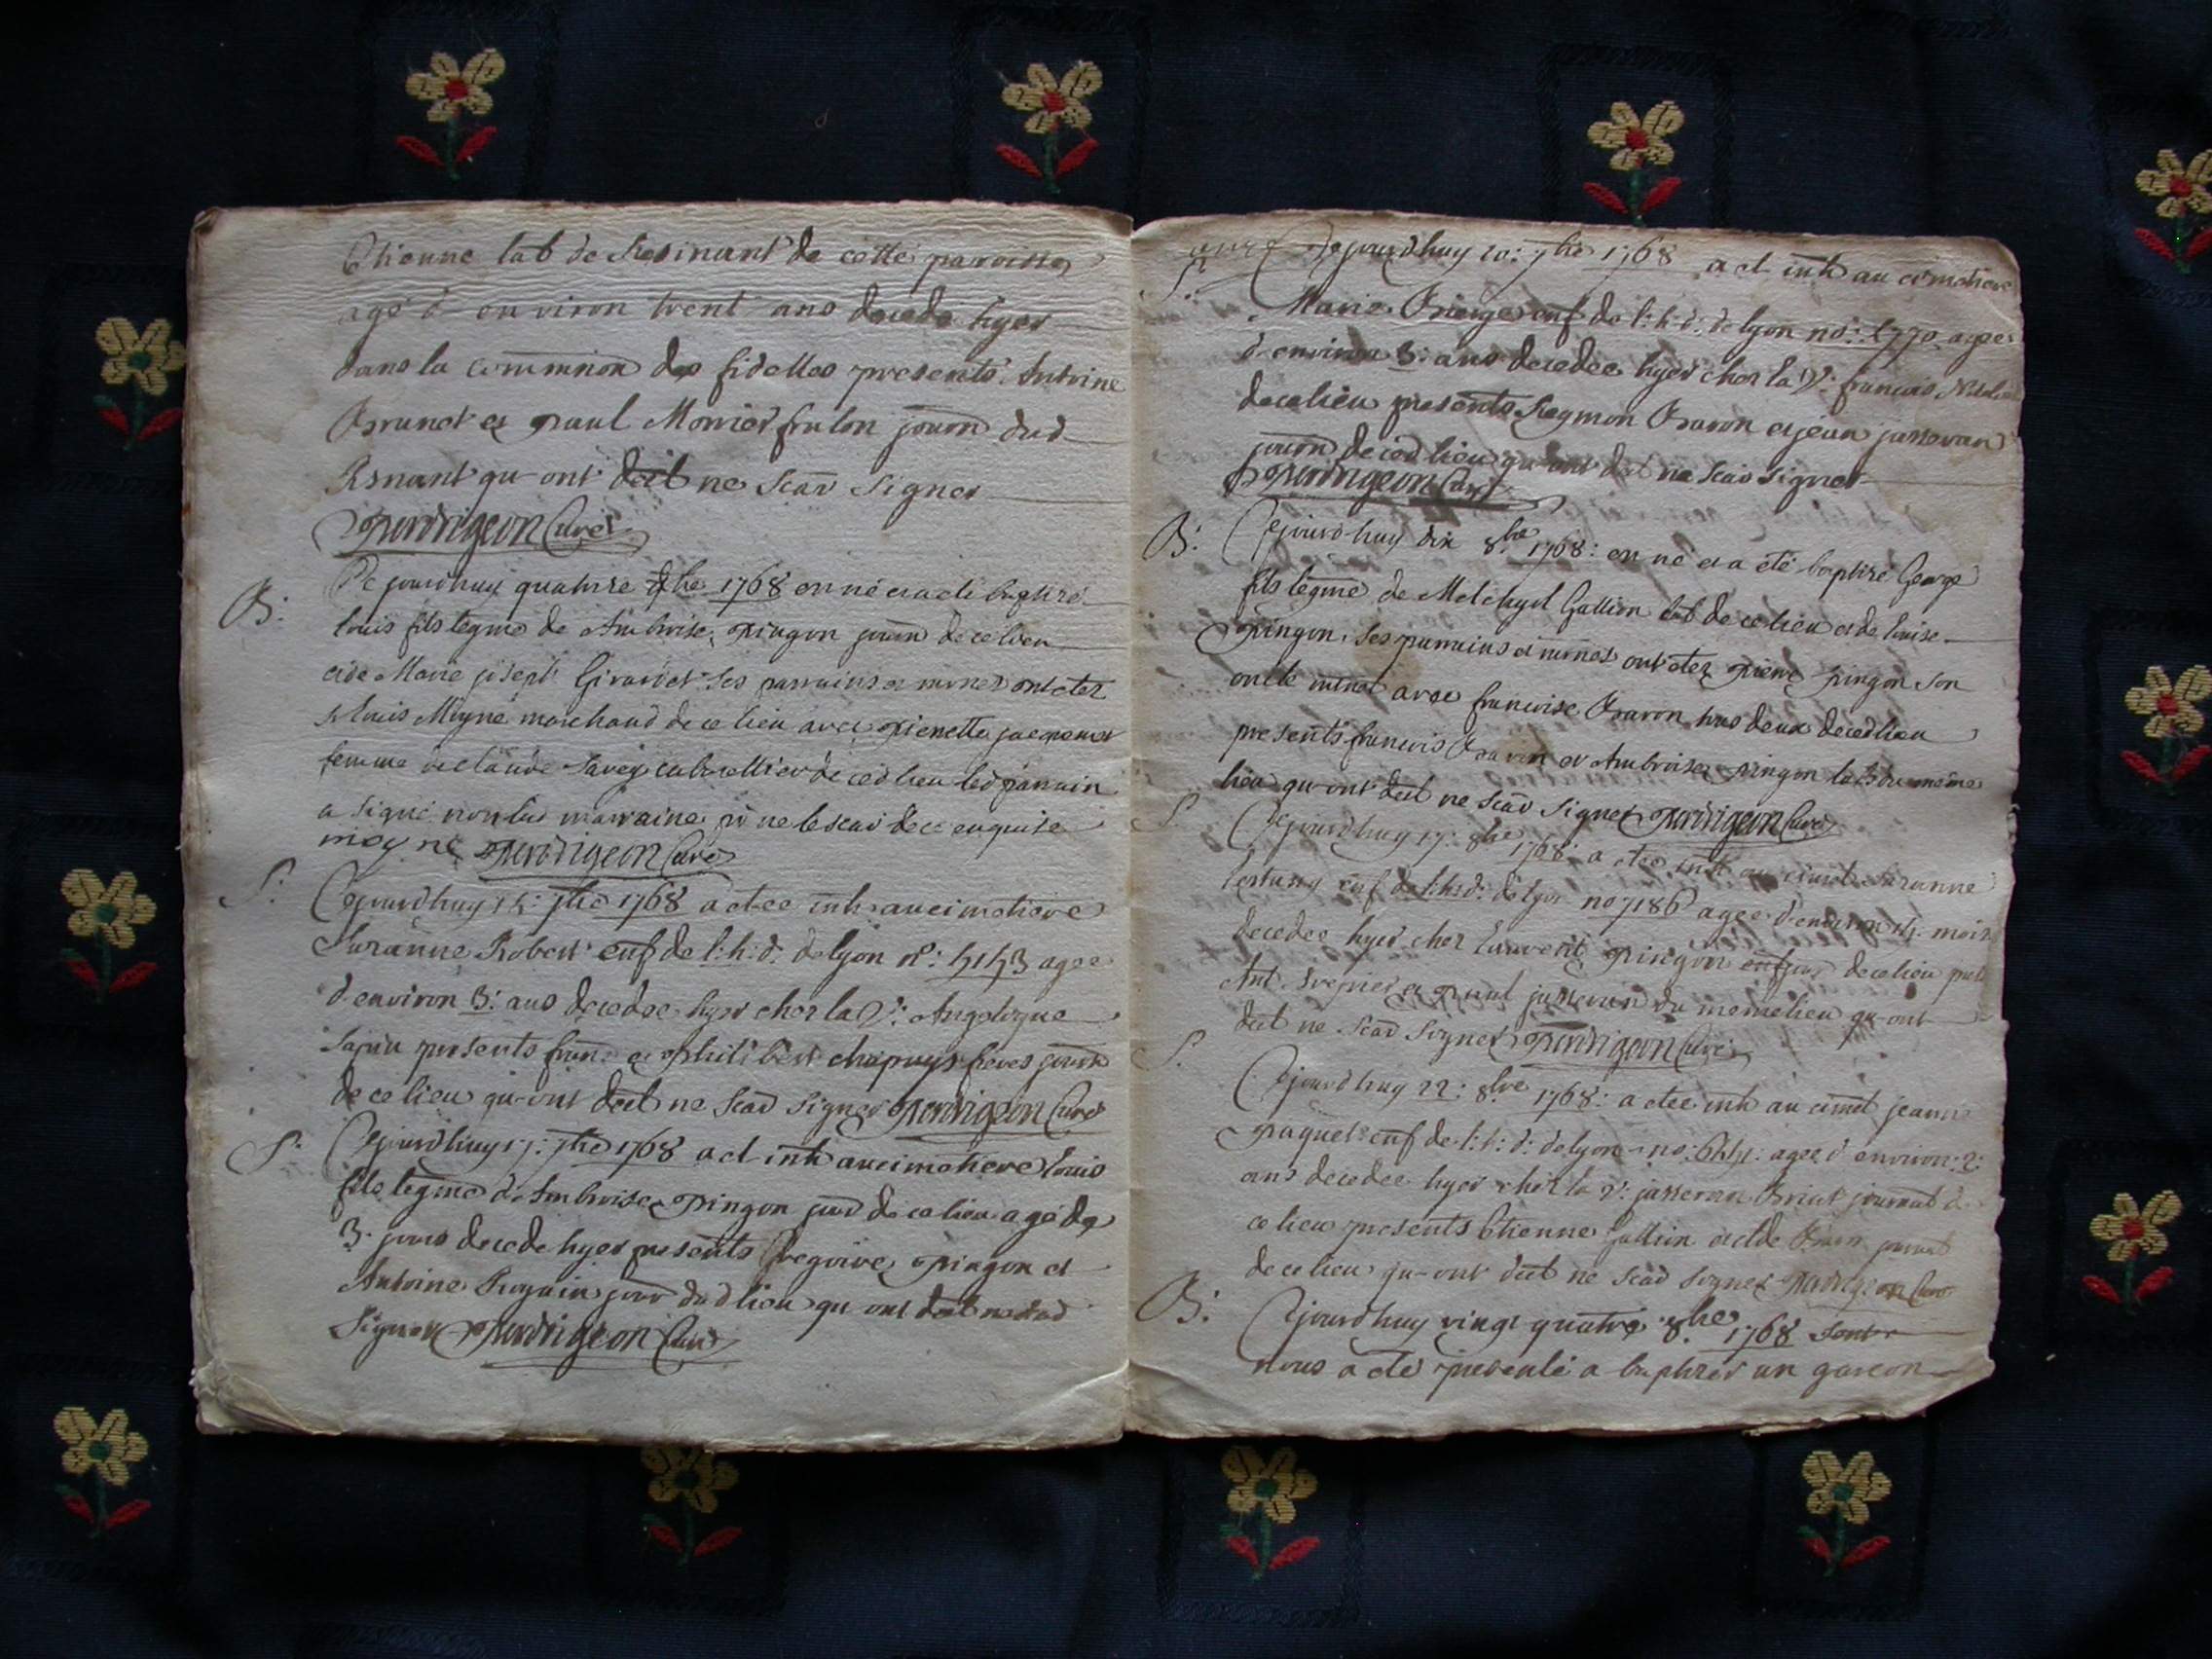 Etienne lab de de cette paroisse
agé d'environ trent ans decede hyer
dans la commnion des fidelles presents Antoine
Brunet et paul Monier journ dud
Resnant qu-ont deel ne scav signer
perdrigeon Curé
B: Ce jourdhuy quatorze 7bre 1768 en né et a eté baptizé
louis fils legme de Ambroise pingon journ de ce lieu
et de Marie joseph Girardet ses parrains et mrnes ont etez
s louis Moyne marchand de ce lieu avec pierrette
femme de claude Savey cabarettier de ced lieu led parrain
a signé non lad marraine p' ne le scav de ce enquise
moyne perdrigeon Curé
S: Cejourdhuy 14: 7bre 1768 a etee inh au cimetiere
Suzanne Robert enf de l:h:d: de lyon n°: 4143 agee
d'environ 3: ans decedee hyer chez la V: Angelique
Sapin presents fran: et philibert chapuys freres journ
de ce lieu qu-ont deel ne scav signer perdrigeon Curé
S: Cejourdhuy 17: 7bre 1768 a et inh au cimetiere louis
fils legme de Ambroise pingon jour de ce lieu agé de
3: jours decede hyer presents Gregoire pingon et
Antoine jour dud lieu qu ont deel ne scav
signer perdrigeon Curé
S: Cejourdhuy 20: 7bre 1768 a et inh au cimetiere
Marie enf de l:h:d: de lyon no: 1770 agee
d'environ 3: ans decedee hyer chez la V: francois
de ce lieu presents Reymon Bavon et jean jasseran
journ de ced lieu qu-ont deel ne scav signer
perdrigeon Curé
B: Cejourdhuy dix 8bre 1768: en né et a eté baptizé George
fils legme de Melchyol Gallion lab de ce lieu et de louise
pingon, ses parrains et mrnes ont etez pierre pingon son
oncle avec francoise Bavon tous deux de ced lieu
presents francois Bavon et Ambroise pingon labs du meme
lieu qu-ont deel ne scav signer perdrigeon Curé
S. Cejourdhuy 17: 8bre 1768: a etee inh au cimet Suzanne
enf de l:h:d: de lyon no 7186 agee d'environ 14: mois
decedee hyer chez laurent pingon de ce lieu
Ant: et paul jasseran du meme lieu qu-ont
deel ne scav signer perdrigeon Curé
S. Cejourdhuy 22: 8bre 1768: a etee inh au cimet jeanne
paquet enf de l:h:d: de lyon no: agee d'environ: 2:
ans decedee hyer chez la V: jasseran journal de
ce lieu presents Etienne Gallion et
de ce lieu qu-ont deel ne scav signer perdrigeon Curé
B: Cejourdhuy vingt quatre 8bre 1768
nous a eté presenté a baptizer un garcon